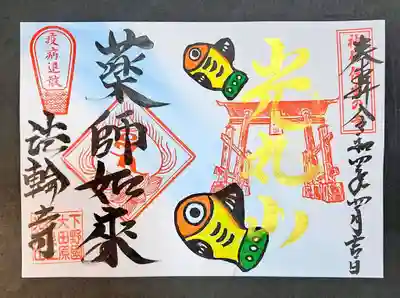 奉拝 令和四年四月吉日
光丸山
薬師如來
疫病退散
法輪寺
下野国
大田原